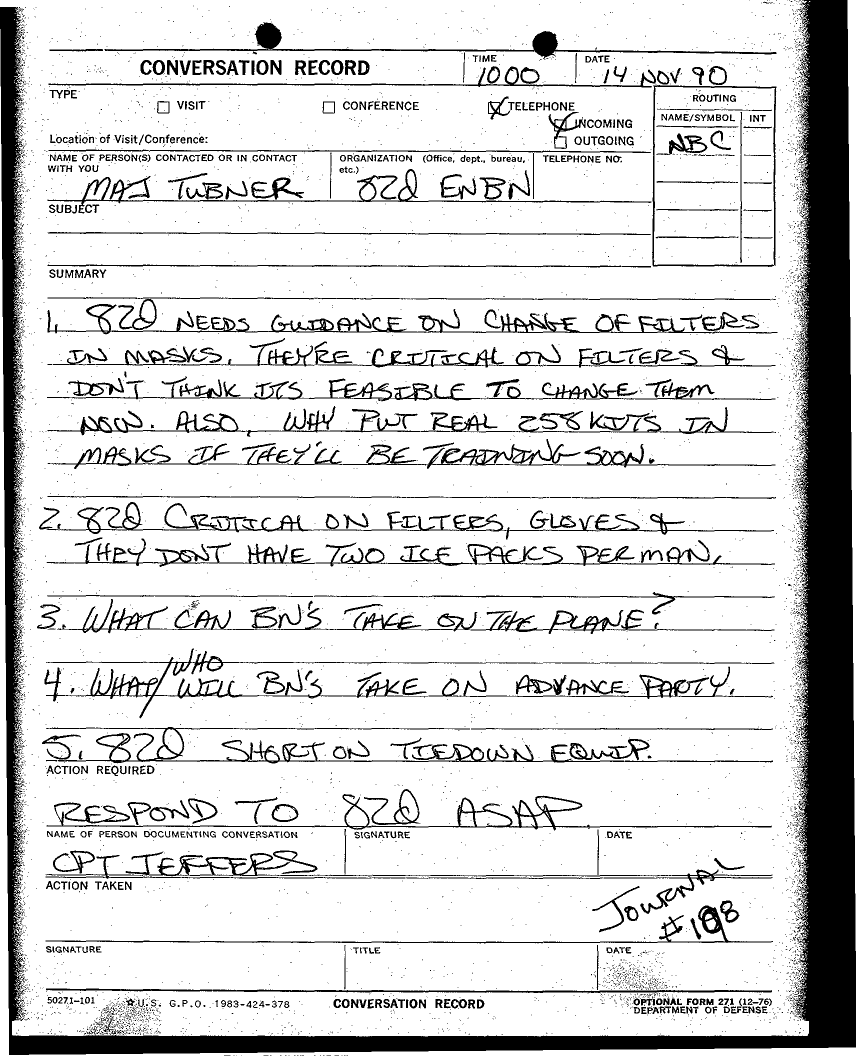 CONVERSATION RECORD
TIME
1000
DATE
14 NOV 90
TYPE
VISIT
CONFERENCE
TELEPHONE
INCOMING
OUTGOING
Location of Visit/Conference:
ROUTING
NAME/SYMBOL INT
NBC
NAME OF PERSON(S) CONTACTED OR IN CONTACT
WITH YOU
MAJ TURNER
ORGANIZATION (Office, dept., bureau,
etc.)
82d ENBN
TELEPHONE NO:
SUBJECT
SUMMARY
1. 82d NEEDS GUIDANCE ON CHANGE OF FILTERS
IN MASKS. THEY'RE CRITICAL ON FILTERS &
DON'T THINK ITS FEASIBLE TO CHANGE THEM
NOW. ALSO, WHY PUT REAL 258 KITS IN
MASKS IF THEY'LL BE TRAINING SOON.
2. 82d CRITICAL ON FILTERS, GLOVES &
THEY DONT HAVE TWO ICE PACKS PER MAN.
3. WHAT CAN BN'S TAKE ON THE PLANE?
4. WHAT/WHO WILL BN'S TAKE ON ADVANCE PARTY.
5. 82d SHORT ON TIEDOWN EQUIP.
ACTION REQUIRED
RESPOND TO 82d ASAP.
NAME OF PERSON DOCUMENTING CONVERSATION
CPT JEFFERS
SIGNATURE
DATE
ACTION TAKEN
JOURNAL
#198
SIGNATURE
TITLE
DATE
50271-101
☆ U.S. G.P.O. 1983-424-378
CONVERSATION RECORD
OPTIONAL FORM 271 (12-76)
DEPARTMENT OF DEFENSE